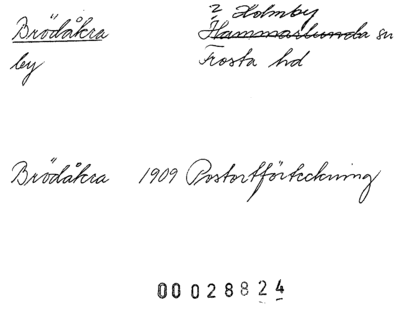 2 Holmby
Brödåkra Hammarlunda sn
by Frosta hd
Brödåkra 1909 Postortförteckning
00028824